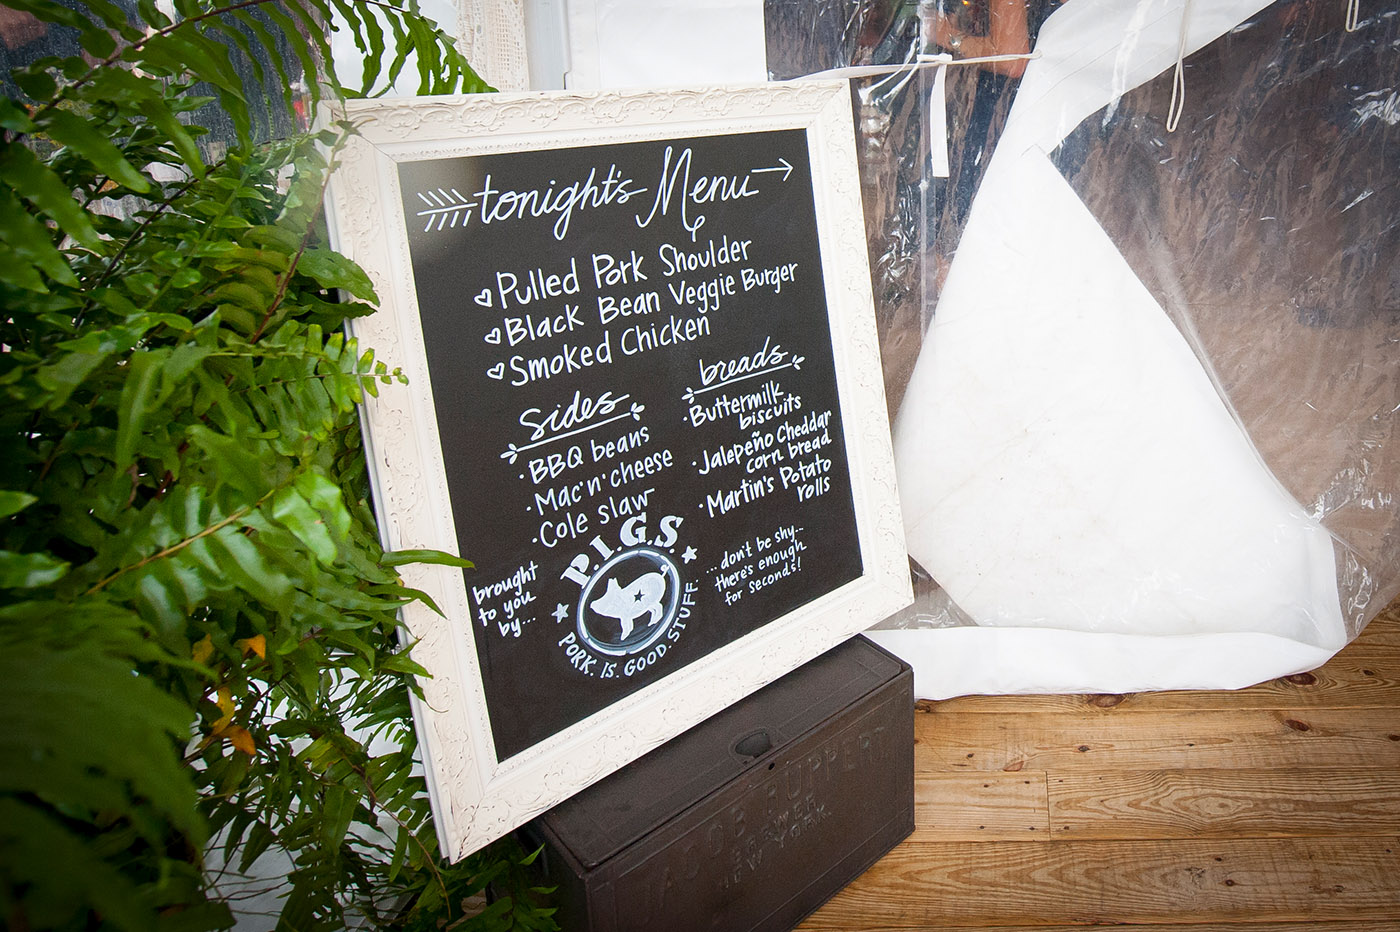 tonight's Menu
Pulled Pork Shoulder
Black Bean Veggie Burger
Smoked Chicken
sides
· BBQ beans
· Mac'n'cheese
· Cole slaw
breads
· Buttermilk
biscuits
· Jalepeño Cheddar
corn bread
· Martin's Potato
rolls
brought
to you
by...
P.I.G.S.
PORK. IS. GOOD. STUFF.
...don't be shy...
there's enough
for seconds!
JACOB RUPPERT
BREWER
NEW YORK.